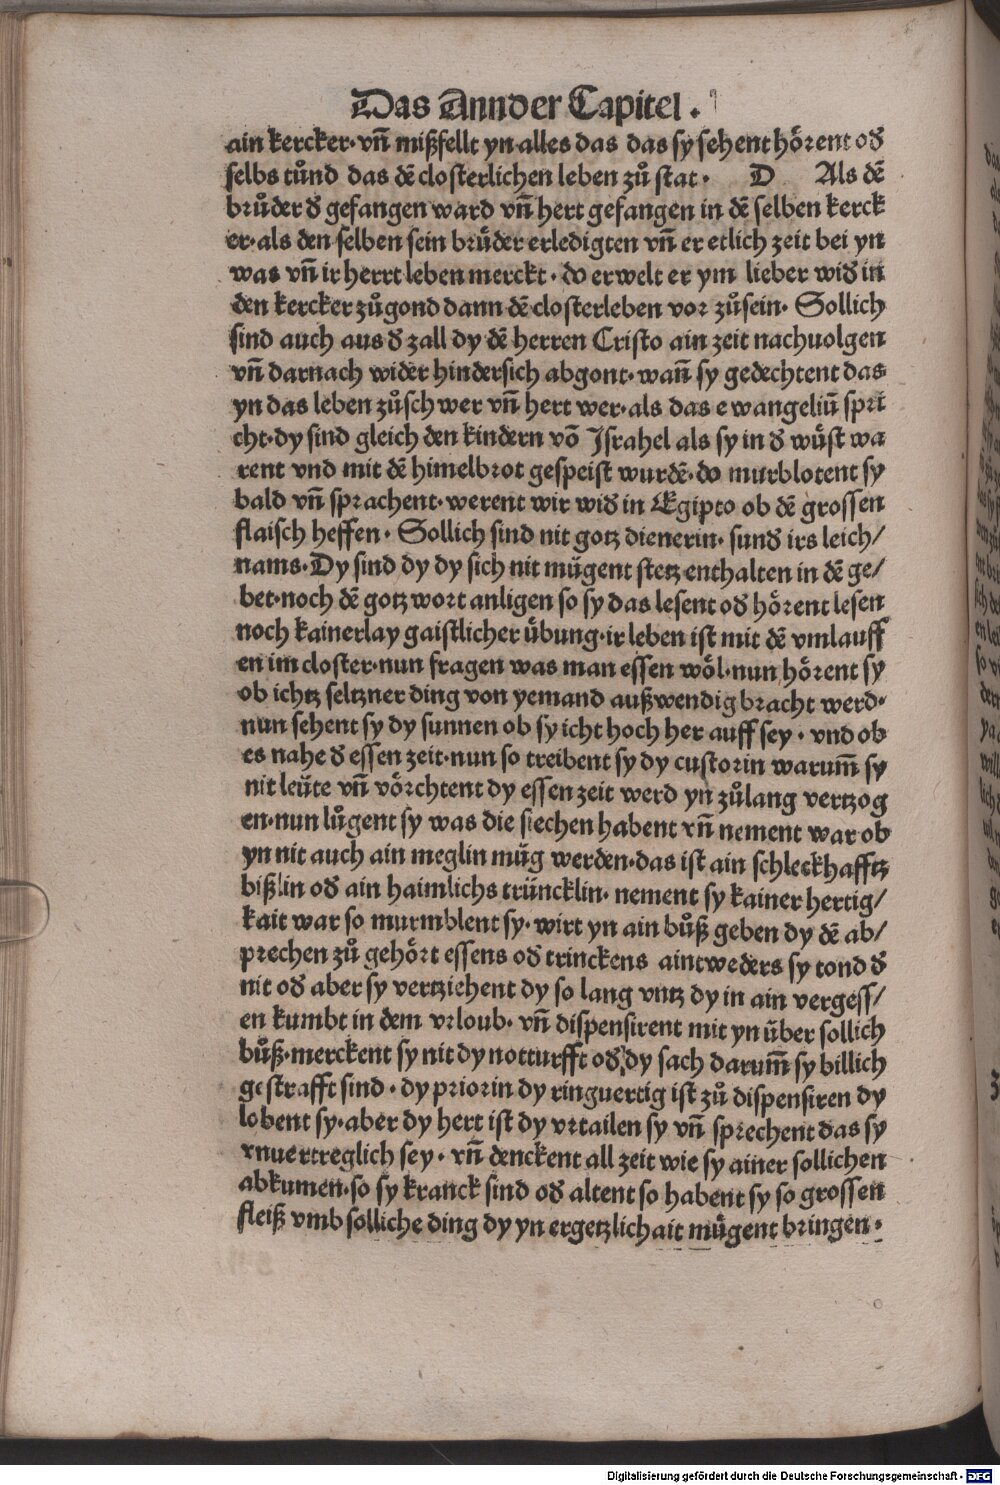 Das Annder Capitel.
ain kercker· vn̄ mißfellt yn alles das das sy sehent hoͤrent od̕
selbs tuͦnd das dē closterlichen leben zuͦ stat· D Als dē
bruͦder d̕ gefangen ward vn̄ hert gefangen in dē selben kerck
er· als den selben sein bruͤder erledigten vn̄ er etlich zeit bei yn
was vn̄ ir herrt leben merckt· do erwelt er ym lieber wid̕ in
den kercker zuͦgond dann dē closterleben vor zuͦsein· Sollich
sind auch aus d̕ zall dy dē herren Cristo ain zeit nachuolgen
vn̄ darnach wider hindersich abgont· wan̄ sy gedechtent das
yn das leben zuͦschwer vn̄ hert wer· als das ewangeliū spri
cht· dy sind gleich den kindern vō Israhel als sy in d̕ wuͤst wa
rent vnd mit dē himelbrot gespeist wurdē· do murblotent sy
bald vn̄ sprachent· werent wir wid̕ in Egipto ob dē grossen
flaisch heffen· Sollich sind nit gotz dienerin· sund̕ irs leich/
nams· Dy sind dy dy sich nit muͤgent stetz enthalten in dē ge/
bet· noch dē gotz wort anligen so sy das lesent od̕ hoͤrent lesen
noch kainerlay gaistlicher uͤbung· ir leben ist mit dē vmlauff
en im closter· nun fragen was man essen woͤl· nun hoͤrent sy
ob ichtz seltzner ding von yemand außwendig bracht werd·
nun sehent sy dy sunnen ob sy icht hoch her auff sey· vnd ob
es nahe d̕ essen zeit· nun so treibent sy dy custorin warum̄ sy
nit leuͤte vn̄ voͤrchtent dy essen zeit werd yn zuͦlang vertzog
en· nun luͦgent sy was die siechen habent vn̄ nement war ob
yn nit auch ain meglin muͤg werden· das ist ain schleckhafftz
bißlin od̕ ain haimlichs truͤncklin· nement sy kainer hertig/
kait war so murmblent sy· wirt yn ain buͦß geben dy dē ab/
prechen zuͦ gehoͤrt essens od̕ trinckens aintweders sy tond d̕
nit od̕ aber sy vertziehent dy so lang vntz dy in ain vergess/
en kumbt in dem vrloub· vn̄ dispensirent mit yn uͤber sollich
buͦß· merckent sy nit dy notturfft od̕ dy sach darum̄ sy billich
gestrafft sind· dy priorin dy ringuertig ist zuͦ dispensiren dy
lobent sy· aber dy hert ist dy vrtailen sy vn̄ sprechent das sy
vnuertreglich sey· vn̄ denckent all zeit wie sy ainer sollichen
abkumen· so sy kranck sind od̕ altent so habent sy so grossen
fleiß vmb solliche ding dy yn ergetzlichait muͤgent bringen·
Digitalisierung gefördert durch die Deutsche Forschungsgemeinschaft · DFG